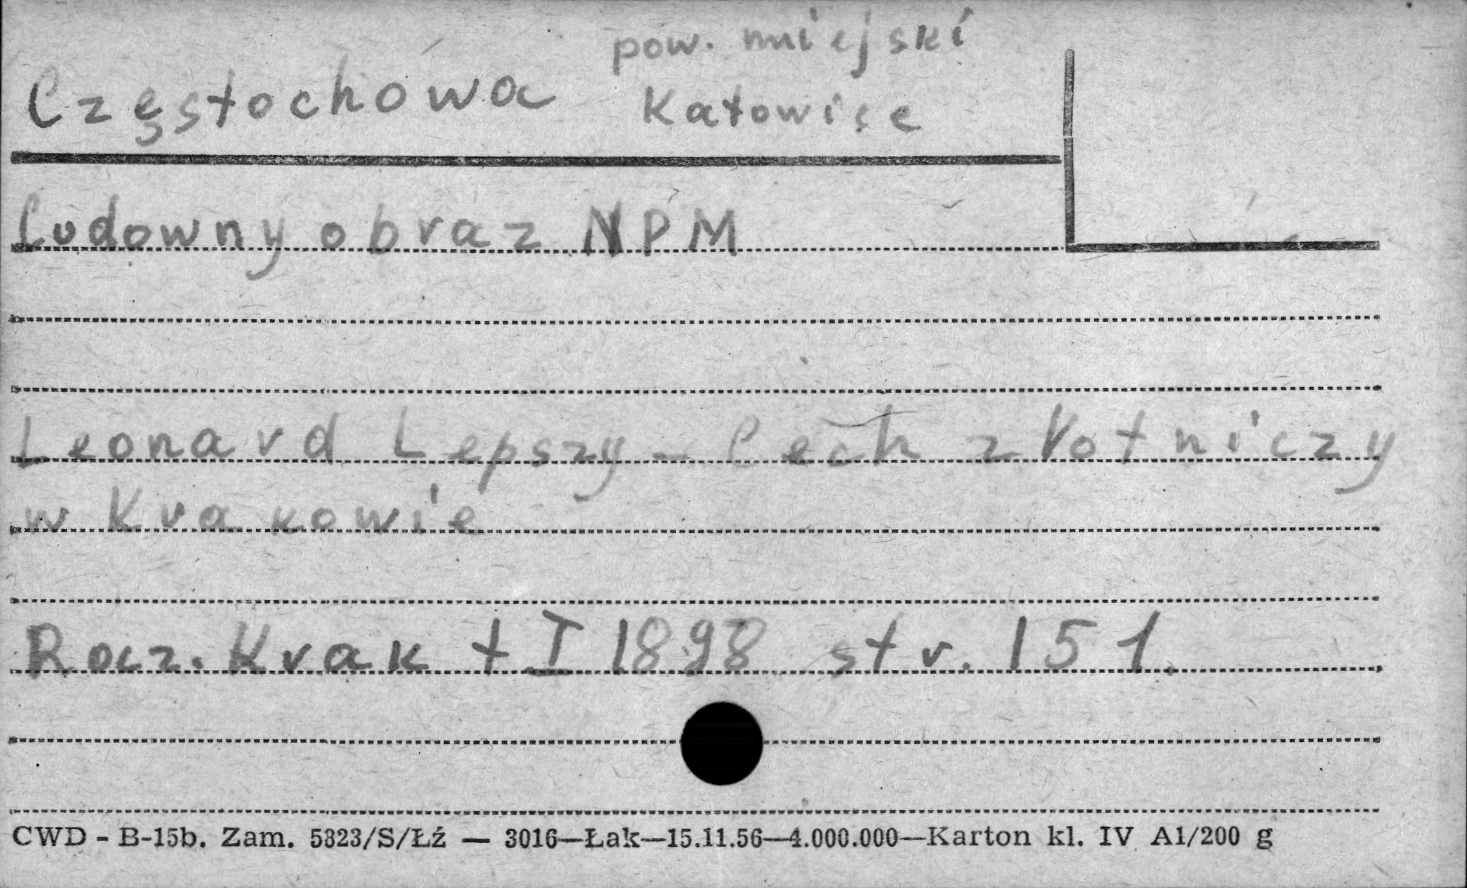 pow. miejski
Częstochowa Katowice
Cudowny obraz NPM
Leonard Lepszy - Cech złotniczy
w Krakowie
Rocz. Krak t I 1898 str. 151.
CWD - B-15b. Zam. 5323/S/Łź — 3016—Łak—15.11.56—4.000.000—Karton kl. IV A1/200 g